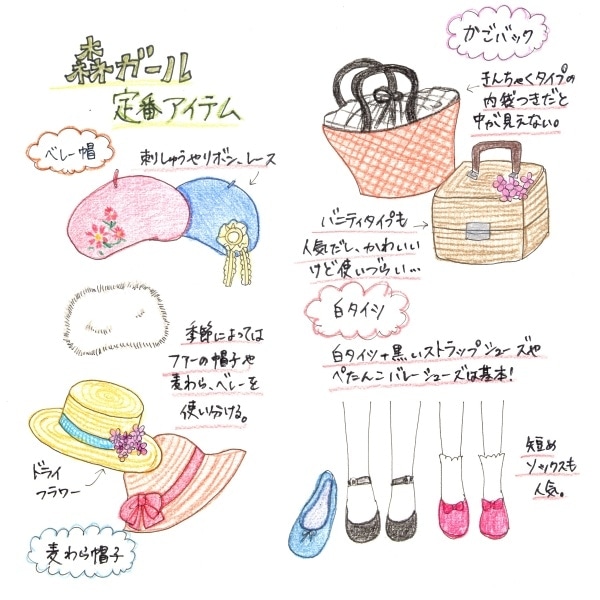 森ガール
定番アイテム
ベレー帽
刺しゅうやリボン、レース
季節によっては
ファーの帽子や
麦わら、ベレーを
使い分ける。
ドライ
フラワー
麦わら帽子
かごバック
きんちゃくタイプの
内袋つきだと
中が見えない。
バニティタイプも
人気だし、かわいい
けど使いづらい…
白タイツ
白タイツ+黒いストラップシューズや
ぺたんこバレーシューズは基本!
短め
ソックスも
人気。